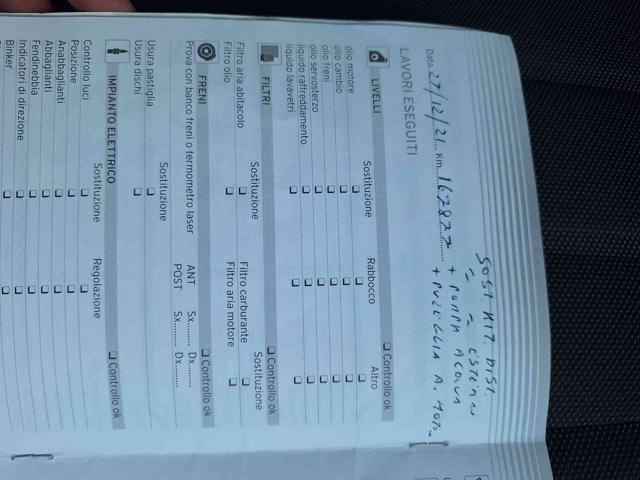 SOST. KIT. DIST.
" " ESTERN
Data 27/12/21 Km 167877 + POMPA ACQUA
+ PULEGGIA A. MOTO
LAVORI ESEGUITI
LIVELLI ❑ Controllo ok
Sostituzione Rabbocco Altro
olio motore ❑ ❑ ❑
olio cambio ❑ ❑ ❑
olio freni ❑ ❑ ❑
olio servosterzo ❑ ❑ ❑
liquido raffreddamento ❑ ❑ ❑
liquido lavavetri ❑ ❑ ❑
FILTRI ❑ Controllo ok
Sostituzione Sostituzione
Filtro aria abitacolo ❑ Filtro carburante ❑
Filtro olio ❑ Filtro aria motore ❑
FRENI ❑ Controllo ok
Prova con banco freni o termometro laser ANT Sx......... Dx.........
POST Sx......... Dx.........
Sostituzione
Usura pastiglia ❑
Usura dischi ❑
IMPIANTO ELETTRICO ❑ Controllo ok
Sostituzione Regolazione
Controllo luci ❑ ❑
Posizione ❑ ❑
Anabbaglianti ❑ ❑
Abbaglianti ❑ ❑
Fendinebbia ❑ ❑
Indicatori di direzione ❑ ❑
Binker ❑ ❑